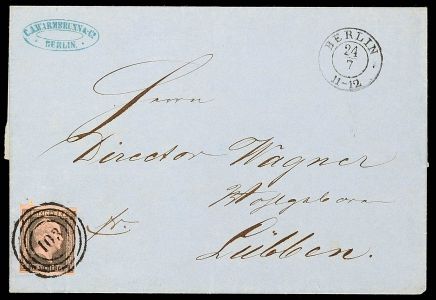 C. A. WARMBRUNN & Co.
BERLIN.
BERLIN
24
7
11-12
Herrn
Director Wagner
Wohlgeboren
fr.
Lübben.
103